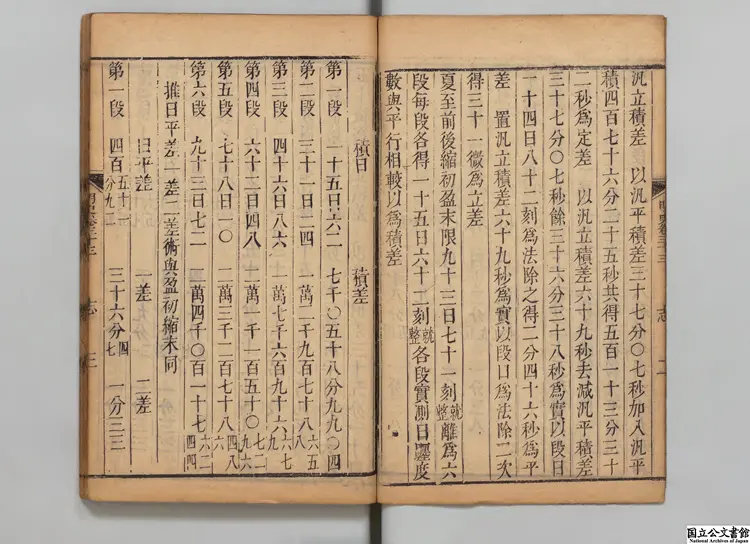 汎立積差 以汎平積差三十七分〇七秒加入汎平
積四百七十六分二十五秒共得五百一十三分三十
二秒為定差 以汎立積差六十九秒去減汎平積差
三十七分〇七秒餘三十六分三十八秒為實以段日
一十四日八十二刻為法除之得二分四十六秒為平
差 置汎立積差六十九秒為實以段日為法除二次
得三十一微為立差
夏至前後縮初盈末限九十三日七十一刻就整離為六
段每段各得一十五日六十二刻就整各段實測日躔度
數與平行相較以為積差
積日 積差
第一段 一十五日六二 七千〇五十八分九九〇四
第二段 三十一日二四 一萬二千九百七十八六五八
第三段 四十六日八六 一萬七千六百九十六六七九
第四段 六十二日四八 二萬一千一百五十〇七二九六
第五段 七十八日一〇 二萬三千二百七十八四八六
第六段 九十三日七二 二萬四千〇百一十七六二四四
推日平差一差二差術與盈初縮末同
日平差 一差 二差
第一段 四百五十一分九二 三十六分四七 一分三三
志 二
志 三
国立公文書館
National Archives of Japan